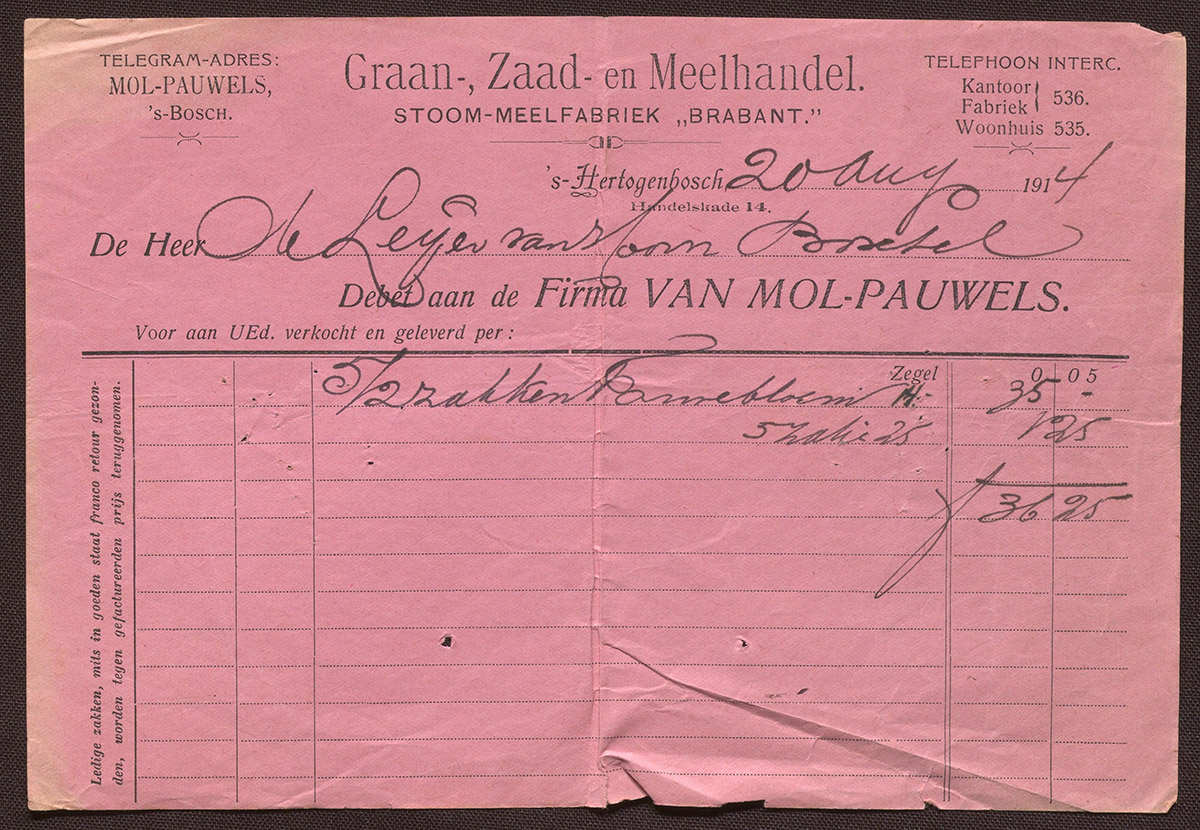 TELEGRAM-ADRES:
MOL-PAUWELS,
's-BOSCH.
Graan-, Zaad- en Meelhandel.
STOOM-MEELFABRIEK „BRABANT.”
TELEPHOON INTERC.
Kantoor
Fabriek } 536.
Woonhuis 535.
's-Hertogenbosch 20 Aug 1914
Handelskade 14.
De Heer de Leijer van Hoorn Boxtel
Debet aan de Firma VAN MOL-PAUWELS.
Voor aan UEd. verkocht en geleverd per:
Zegel 0 05
5/2 zakken bloem 14.- 35 -
5 zakke 25 1 25
f 36 25
Ledige zakken, mits in goeden staat franco retour gezon-
den, worden tegen gefactureerden prijs teruggenomen.